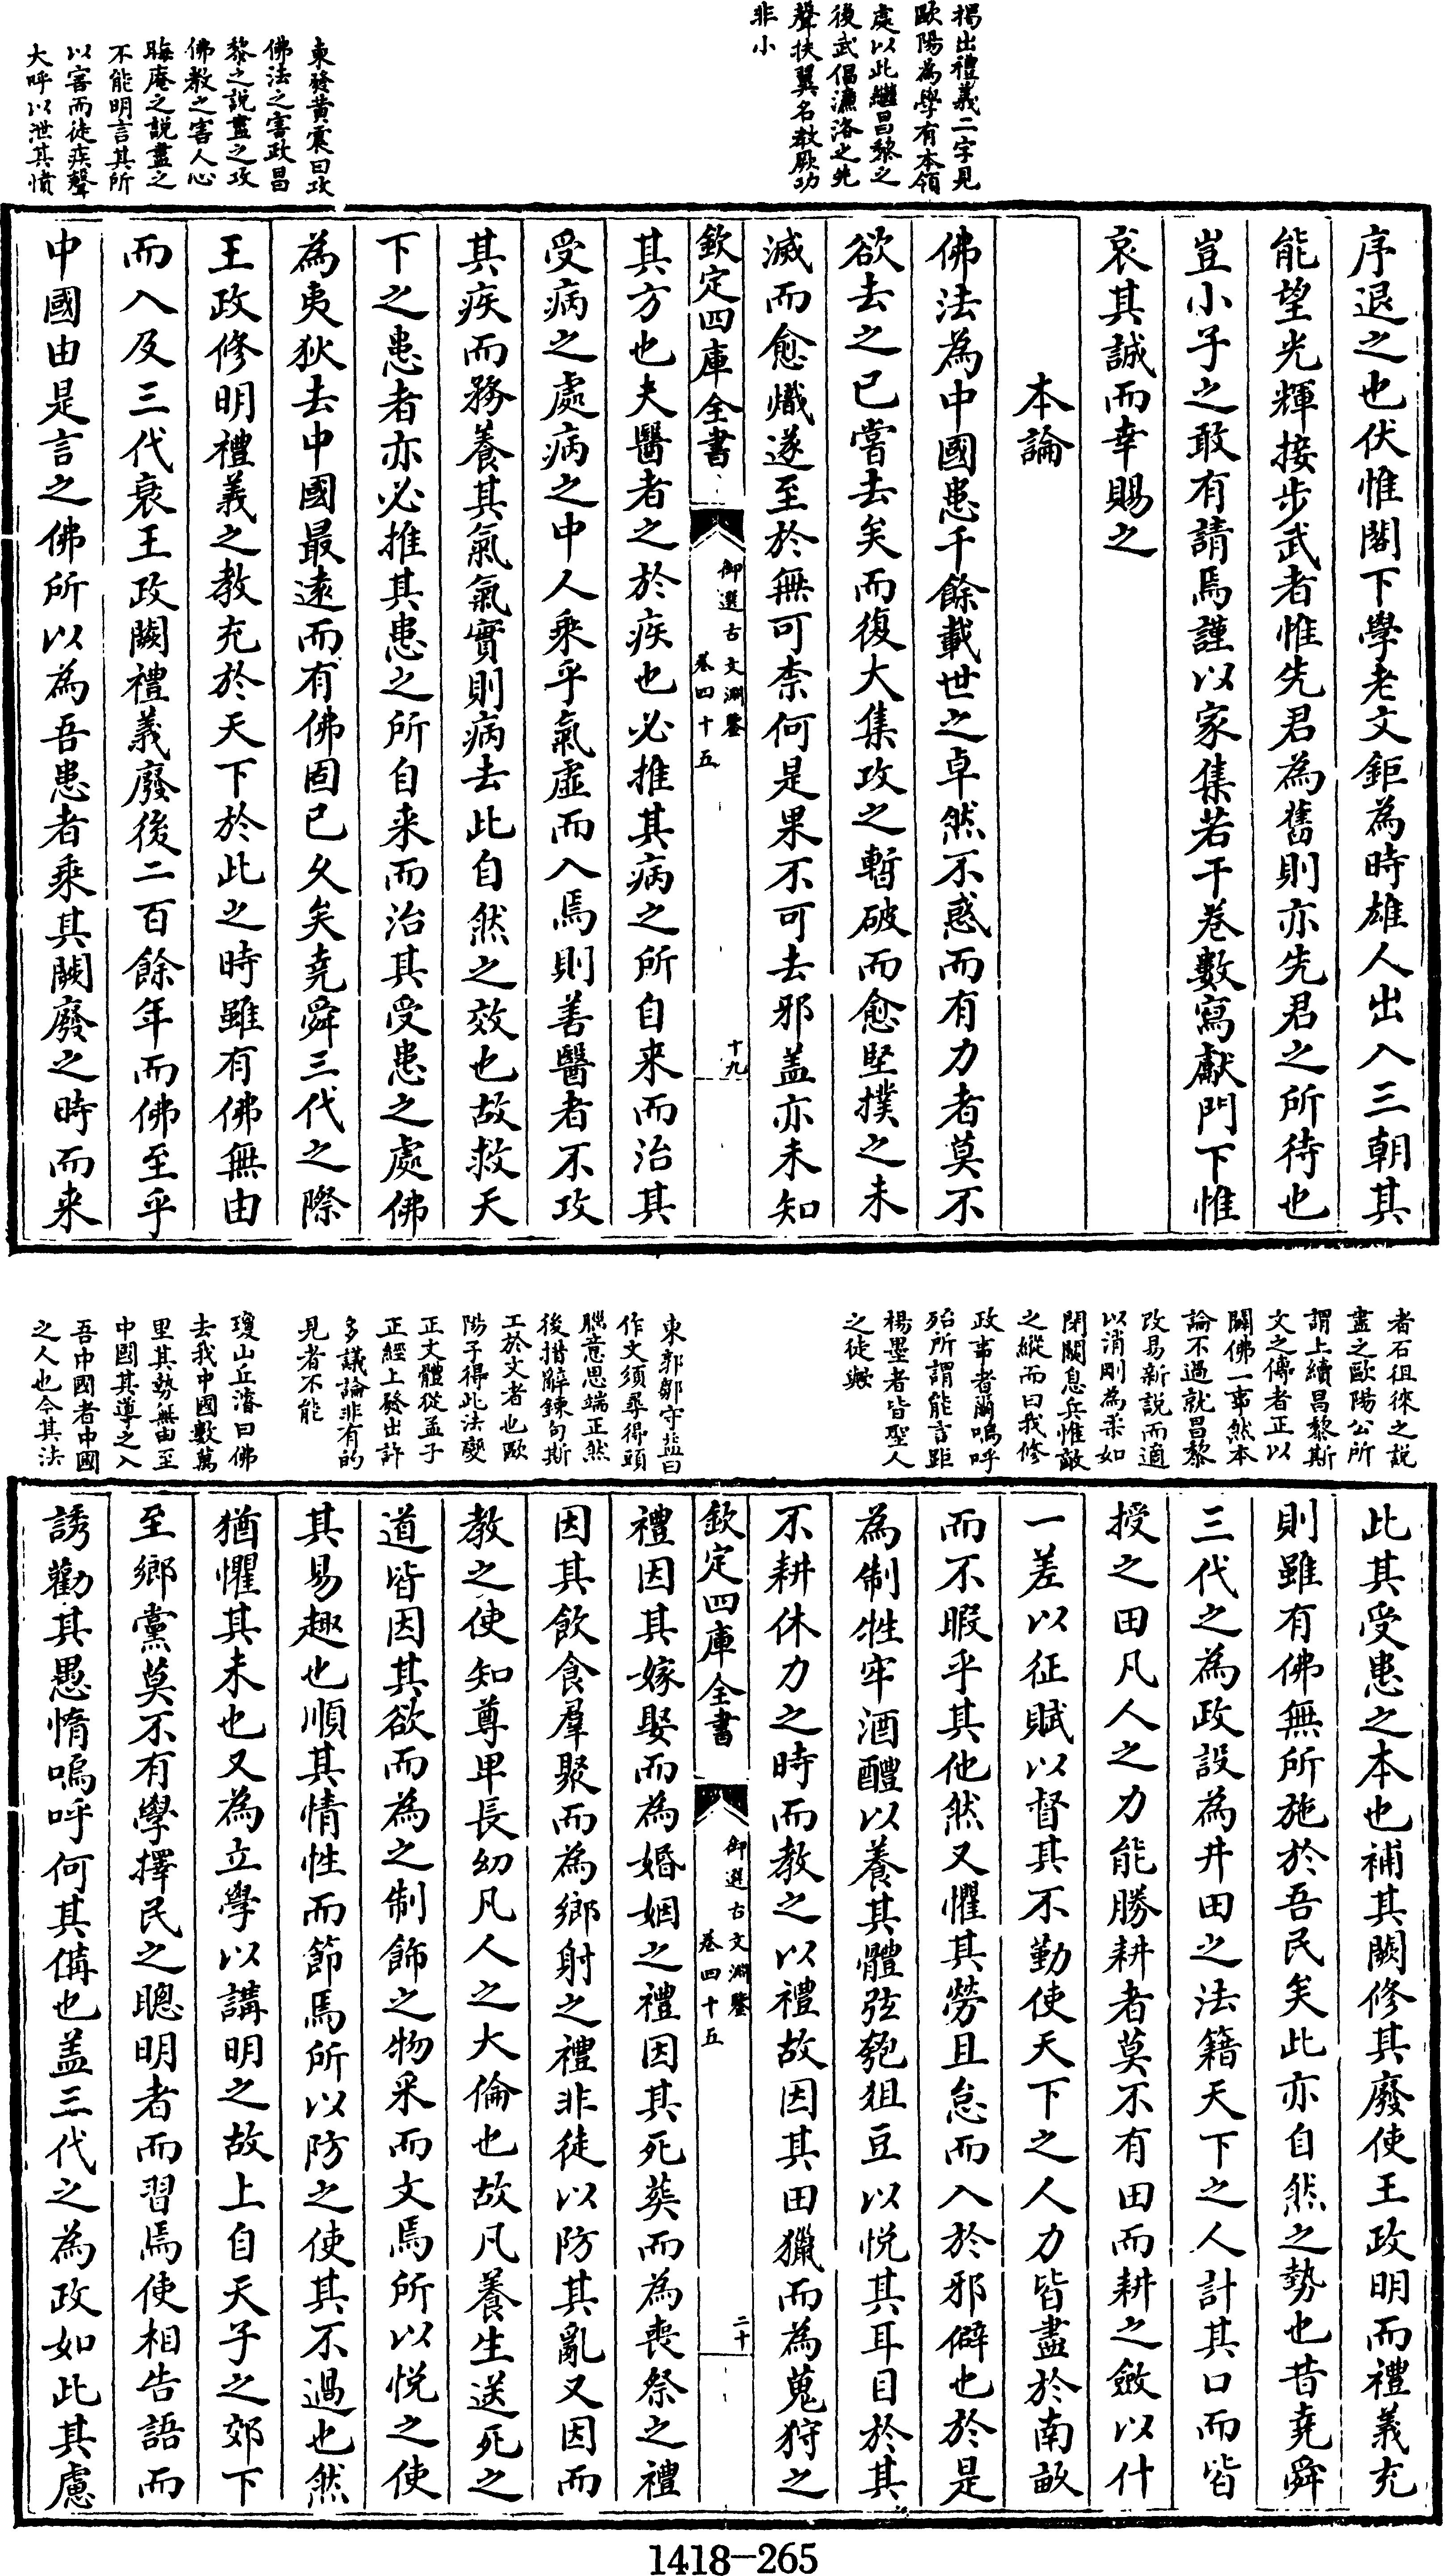 揭出禮義二字見
歐陽為學有本領
處以此繼昌黎之
後武倡濂洛之先
聲扶翼名教厥功
非小
東發黄震曰攻
佛法之害政昌
黎之說盡之攻
佛教之害人心
晦庵之說盡之
不能明言其所
以害而徒疾聲
大呼以泄其憤
序退之也伏惟閣下學老文鉅為時雄人出入三朝其
能望光輝接步武者惟先君為舊則亦先君之所待也
豈小子之敢有請焉謹以家集若干卷數寫獻門下惟
哀其誠而幸賜之
本論
佛法為中國患千餘載世之卓然不惑而有力者莫不
欲去之已嘗去矣而復大集攻之暫破而愈堅撲之未
滅而愈熾遂至於無可柰何是果不可去邪盖亦未知
欽定四庫全書
御選古文淵鑒
卷四十五
十九
其方也夫醫者之於疾也必推其病之所自来而治其
受病之處病之中人乘乎氣虛而入焉則善醫者不攻
其疾而務養其氣氣實則病去此自然之效也故救天
下之患者亦必推其患之所自来而治其受患之處佛
為夷狄去中國最遠而有佛固已久矣堯舜三代之際
王政修明禮義之教充於天下於此之時雖有佛無由
而入及三代衰王政闕禮義廢後二百餘年而佛至乎
中國由是言之佛所以為吾患者乘其闕廢之時而来
者石徂徠之說
盡之歐陽公所
謂上續昌黎斯
文之傳者正以
闢佛一事然本
論不過就昌黎
改易新說而適
以消剛為柔如
閉關息兵惟敵
之縱而曰我修
政事者爾嗚呼
殆所謂能言距
楊墨者皆聖人
之徒歟
東郭鄒守益曰
作文須尋得頭
腦意思端正然
後措辭鍊句斯
工於文者也歐
陽子得此法變
正文體從孟子
正經上發出許
多議論非有的
見者不能
瓊山丘濬曰佛
去我中國數萬
里其勢無由至
中國其導之入
吾中國者中國
之人也今其法
此其受患之本也補其闕修其廢使王政明而禮義充
則雖有佛無所施於吾民矣此亦自然之勢也昔堯舜
三代之為政設為井田之法籍天下之人計其口而皆
授之田凡人之力能勝耕者莫不有田而耕之斂以什
一差以征賦以督其不勤使天下之人力皆盡於南畝
而不暇乎其他然又懼其勞且怠而入於邪僻也於是
為制牲牢酒醴以養其體弦匏俎豆以悦其耳目於其
不耕休力之時而教之以禮故因其田獵而為蒐狩之
欽定四庫全書
御選古文淵鑒
卷四十五
二十
禮因其嫁娶而為婚姻之禮因其死葬而為喪祭之禮
因其飲食羣聚而為鄉射之禮非徒以防其亂又因而
教之使知尊卑長幼凡人之大倫也故凡養生送死之
道皆因其欲而為之制飾之物采而文焉所以悦之使
其易趣也順其情性而節焉所以防之使其不過也然
猶懼其未也又為立學以講明之故上自天子之郊下
至鄉黨莫不有學擇民之聰明者而習焉使相告語而
誘勸其愚惰嗚呼何其備也盖三代之為政如此其慮
1418-265